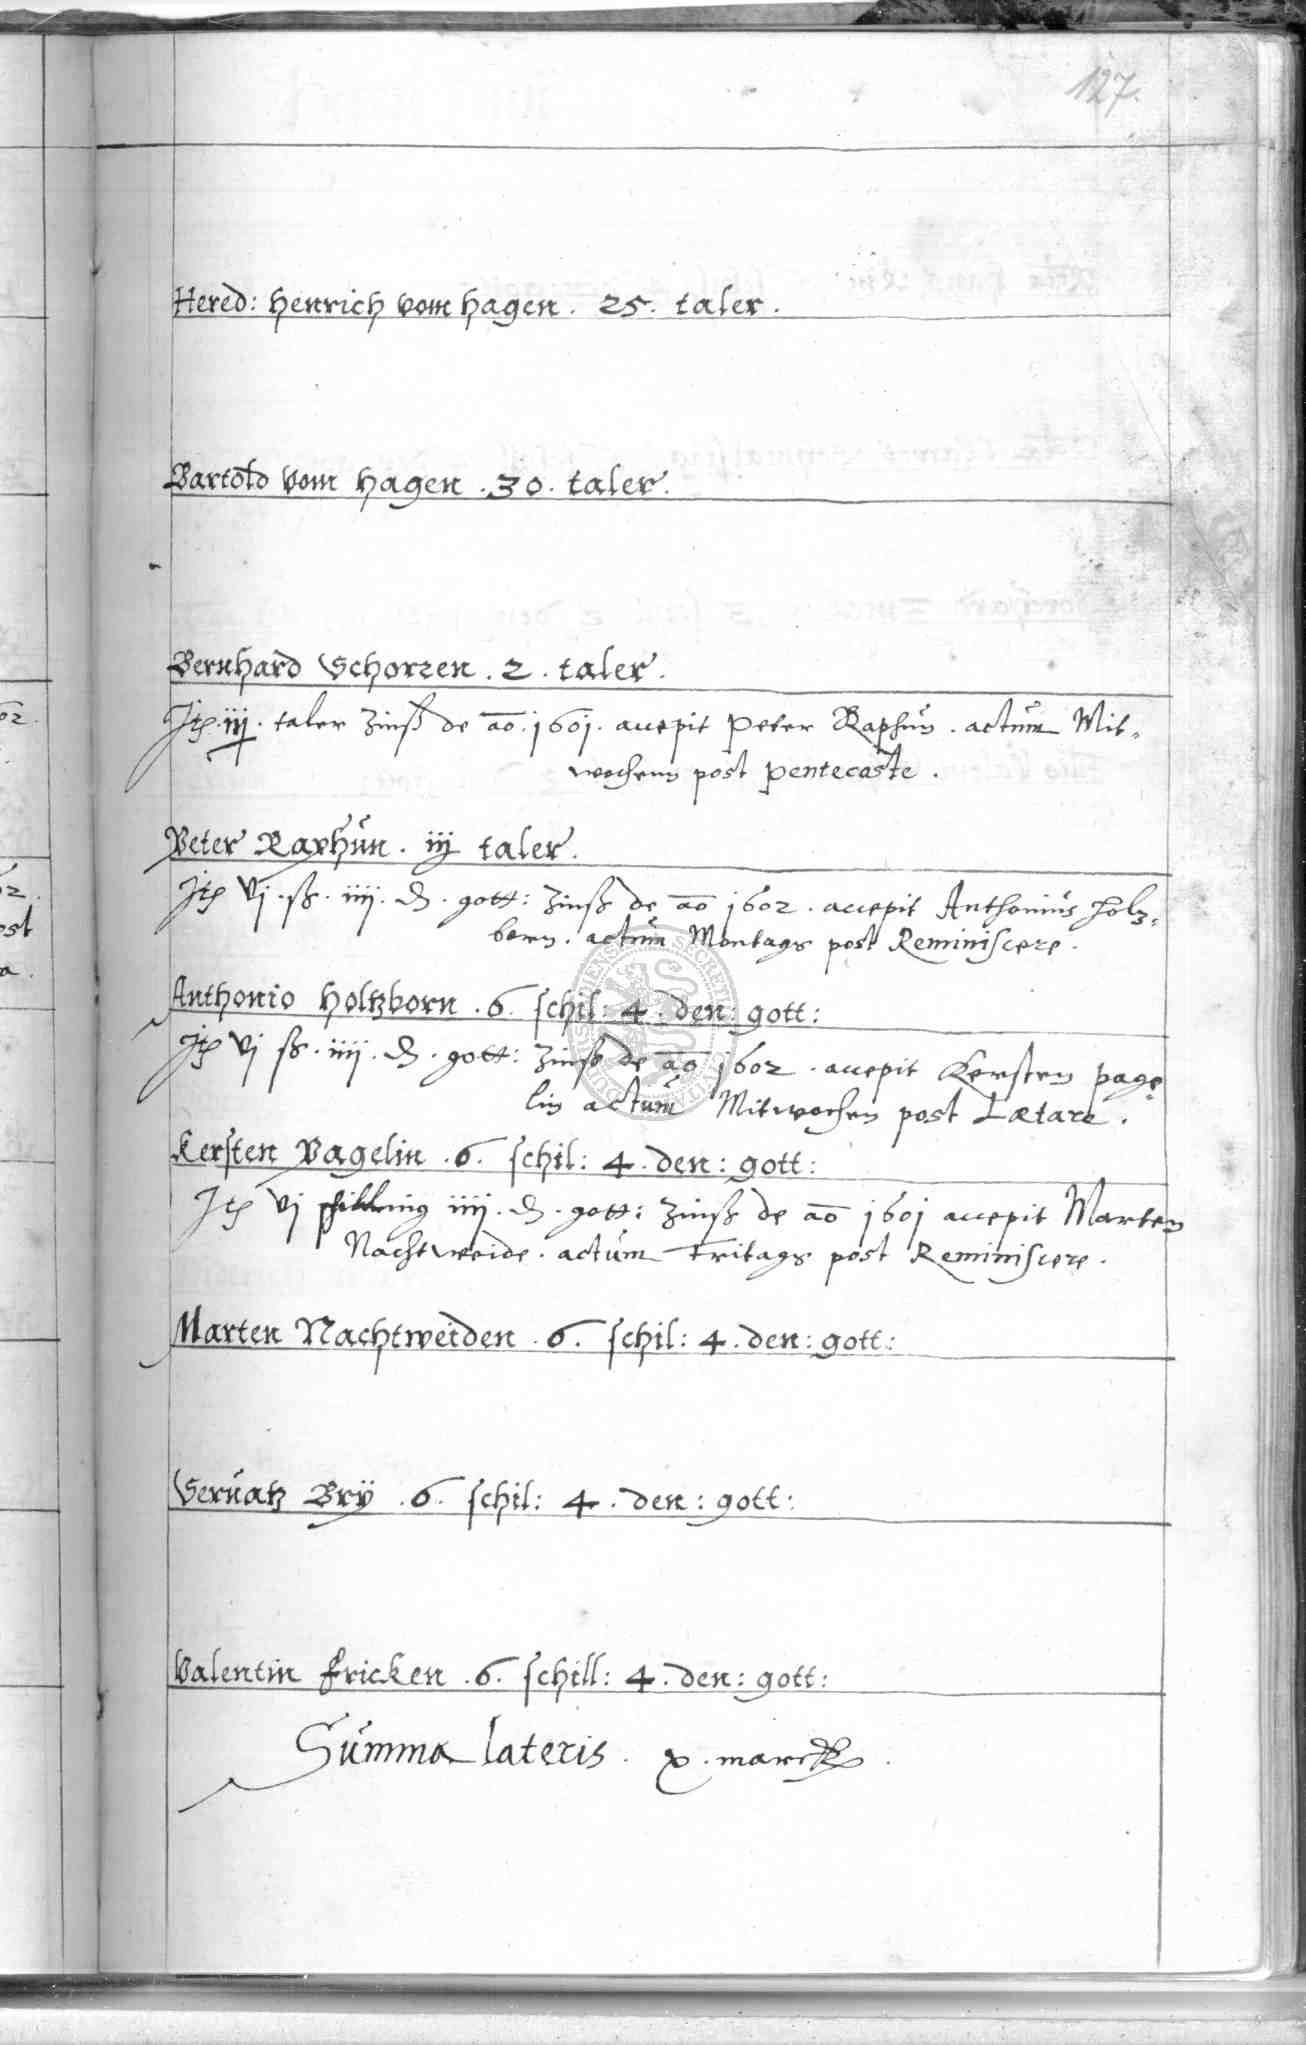 127.
Hered: Henrich vom Hagen . 25. taler .
Bartold vom Hagen . 30. taler .
Bernhard Schorzen . 2 . taler .
Jtē . iij . taler Zinß de ao . 1601 . accepit Peter Raphún . actúm Mit-
wochenn post Pentecoste .
Peter Raphún . iij taler .
Jtē vj . ß . iiij . ₰ . gott: Zinß de ao 1602 . accepit Anthoniús Holz-
born . actúm Montags post Reminiscere .
Anthonio Holtzborn . 6 . schil: 4 . den: gott:
Jtē vj ß . iiij . ₰ . gott: Zinß de ao 1602 . accepit Kersten Page
lin actúm Mitwochen post Lætare .
Kersten Pagelin . 6 . schil: 4 . den: gott:
Jtē vj schilling iiij . ₰ . gott: Zinß de ao 1601 accepit Marten
Nachtweide . actúm Fritags post Reminiscere .
Marten Nachtweiden . 6 . schil: 4 . den: gott:
Servatz Brÿ . 6 . schil: 4 . den: gott:
Valentin Fricken . 6 . schill: 4 . den: gott:
Súmma lateris . x . marck .